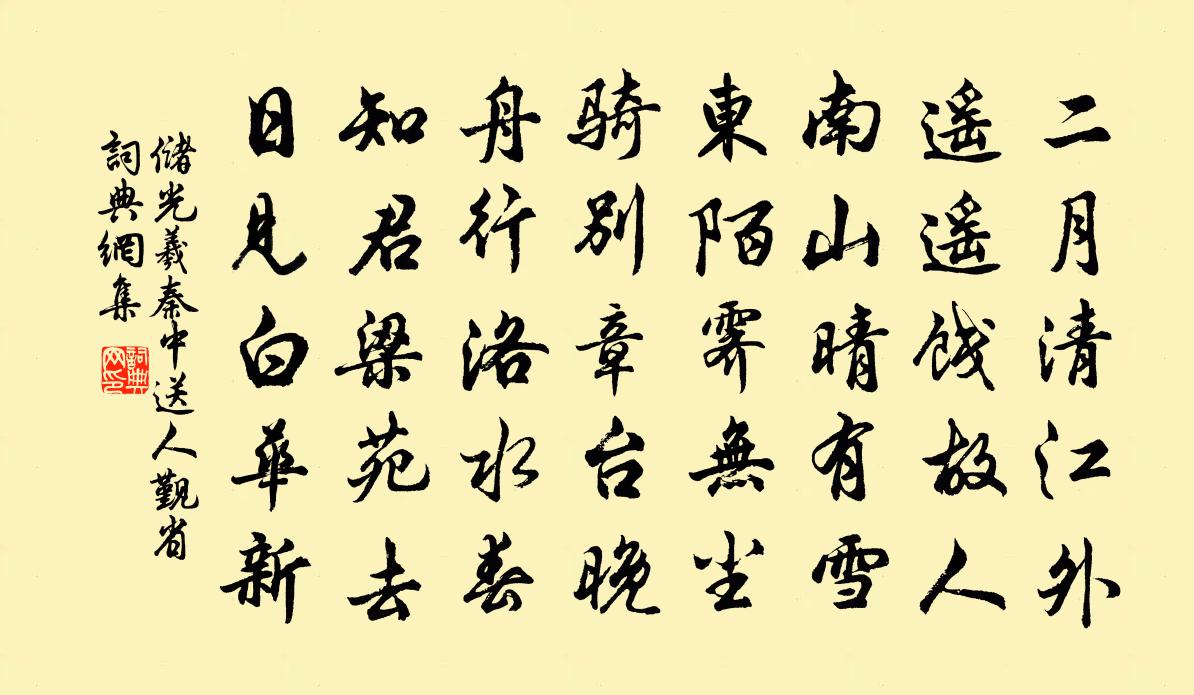 二月清江外
遥遥餞故人
南山晴有雪
東陌霽無尘
骑別章台晚
舟行洛水春
知君梁苑去
日見白華新
儲光羲秦中送人觐省
詞典網集
詞典
网印